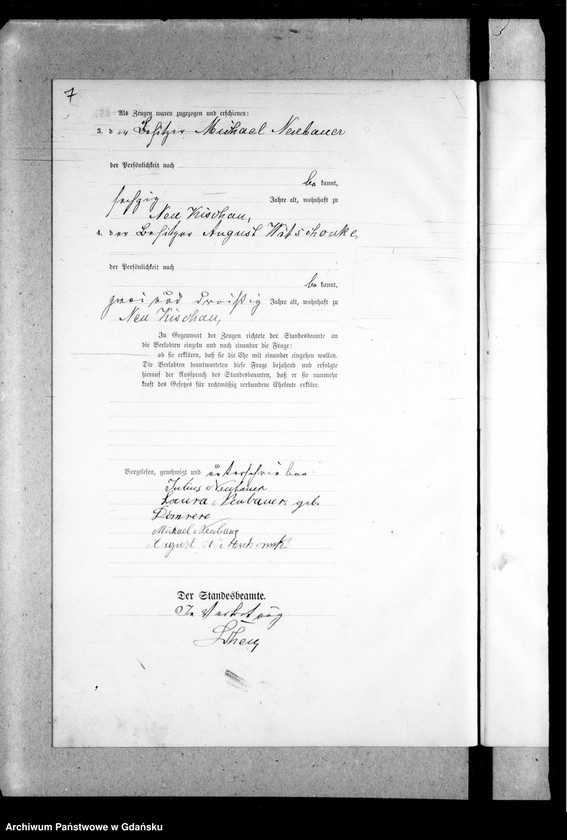 7
Als Zeugen waren zugezogen und erschienen:
3. der Besitzer Michael Neubauer
der Persönlichkeit nach
be kannt,
sechzig Jahre alt, wohnhaft zu
Neu Kischau,
4. der Besitzer August Witschonke,
der Persönlichkeit nach
be kannt,
zwei und dreißig Jahre alt, wohnhaft zu
Neu Kischau,
In Gegenwart der Zeugen richtete der Standesbeamte an
die Verlobten einzeln und nach einander die Frage:
ob sie erklären, daß sie die Ehe mit einander eingehen wollen.
Die Verlobten beantworteten diese Frage bejahend und erfolgte
hierauf der Ausspruch des Standesbeamten, daß er sie nunmehr
kraft des Gesetzes für rechtmäßig verbundene Eheleute erkläre.
Vorgelesen, genehmigt und unterschrieben
Julius Neubauer
Laura Neubauer geb.
Michael Neubauer
August
Der Standesbeamte.
In Vertretung
Archiwum Państwowe w Gdańsku